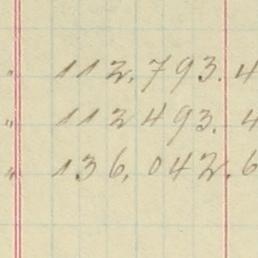 " 112,793.4
" 112493.4
" 136,042.6